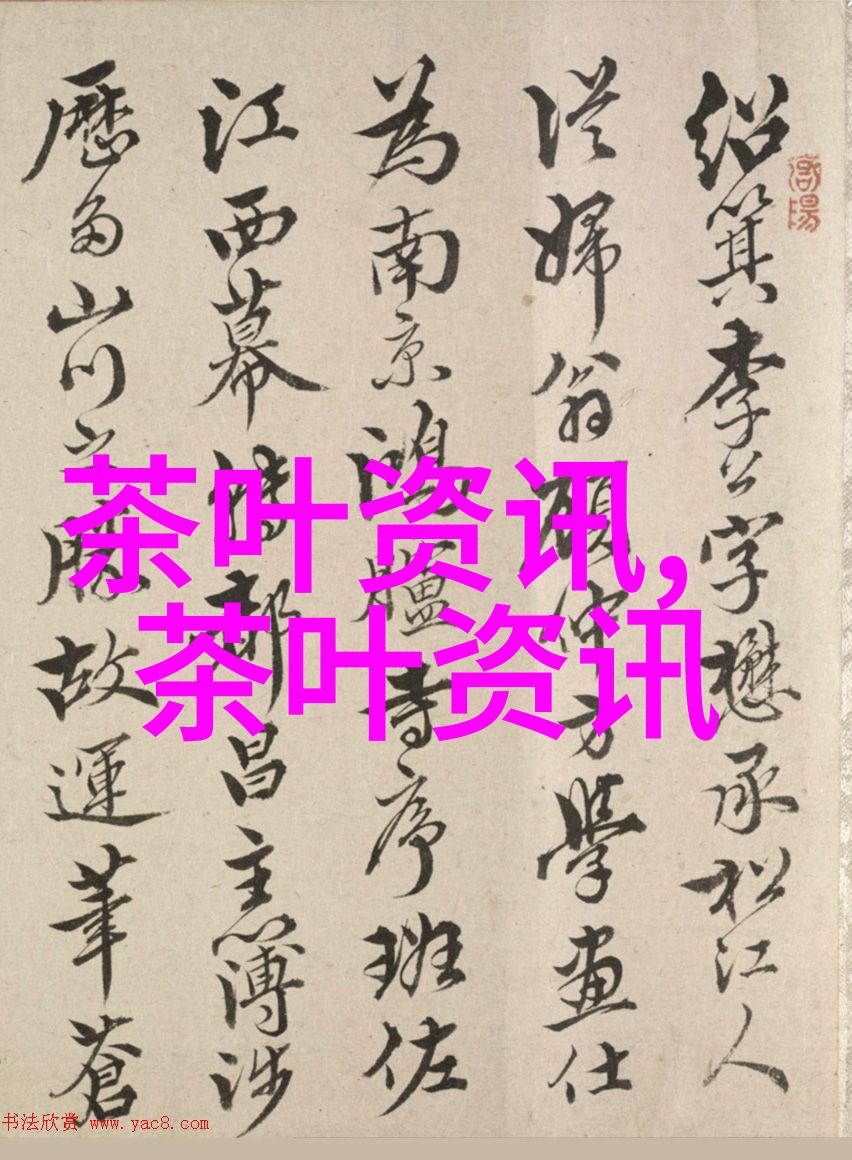 紹箕李公字懋承松江人
從婦翁顧仲方學畫仕
為南京鴻臚寺序班佐
江西幕轉都昌主簿涉
歷多山川之勝故運筆蒼
茶叶资讯,
茶叶资讯
书法欣赏 www.yac8.com